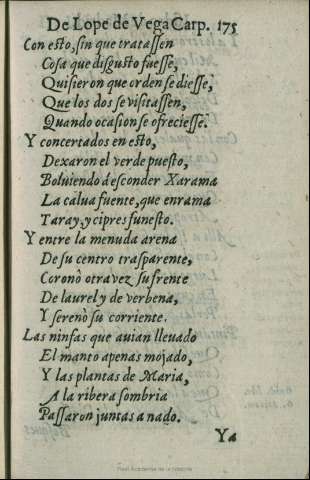 De Lope de Vega Carp. 175
Con eſto, ſin que trataſſen
Coſa que diſguſto fueſſe,
Quiſieron que orden ſe dieſſe,
Que los dos ſe viſitaſſen,
Quando ocaſion ſe ofrecieſſe.
Y concertados en eſto,
Dexaron el verde pueſto,
Boluiendo á eſconder Xarama
La calua fuente, que enrama
Taray, y cipres funeſto.
Y entre la menuda arena
De ſu centro traſparente,
Coronò otra vez ſu frente
De laurel y de verbena,
Y ſerenò ſu corriente.
Las ninfas que auian lleuado
El manto apenas mojado,
Y las plantas de Maria,
A la ribera ſombria
Paſſaron juntas a nado.
Ya
Real Academia de la Historia